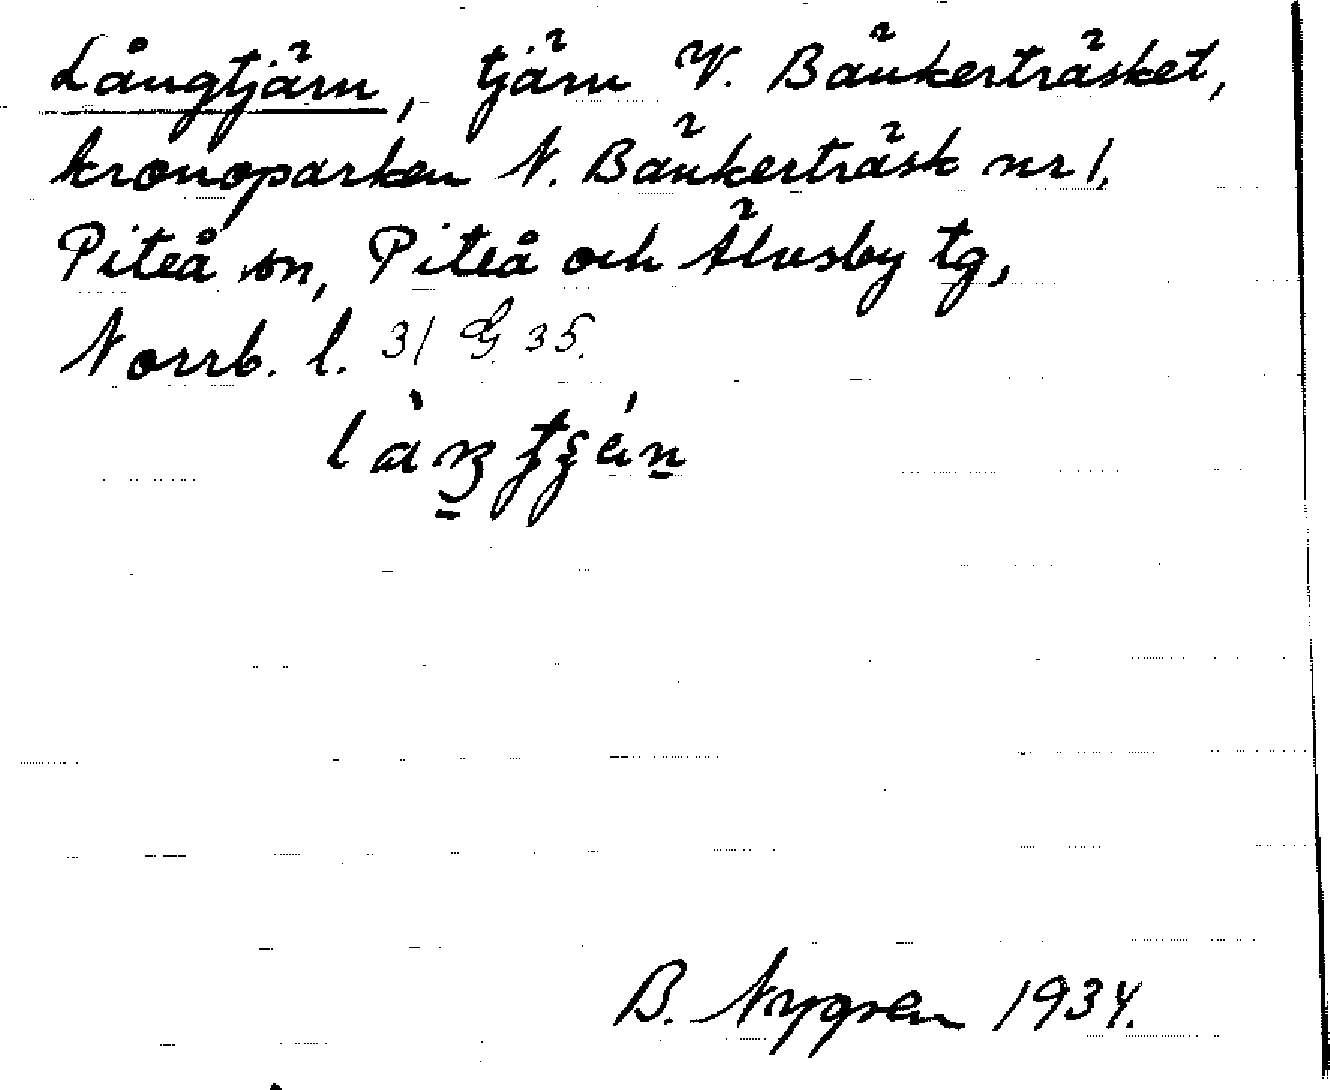 Långtjärn, tjärn V. Bänkerträsket,
kronoparken N. Bänkerträsk nr 1,
Piteå sn, Piteå och Älvsby tg,
Norrb. l. 31 35.
B. Nygren 1934.